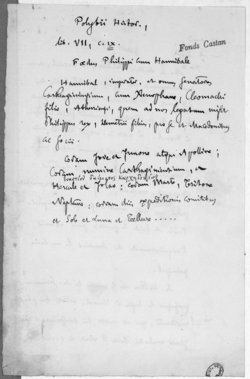 Polybii Histor.,
lib. VII, c. IX.
Fonds Castan
Foedus Philippi cum Hannibale
Hannibal, imperator, et omnes senatores
Carthaginiensium, cum Xenophane, Cleomachi
filio, Atheniensi, quem ad nos legatum misit
Philippus rex, Demetrii filius, pro se et Macedonibus
ac sociis.
Coram Jove et Junone atque Apolline ;
Coram numine Carthaginiensium, et
Hercule et Iolao ; coram Marte, Tritone
Neptuno ; coram diis expeditionis comitibus
et Sole et Luna et Tellure .....